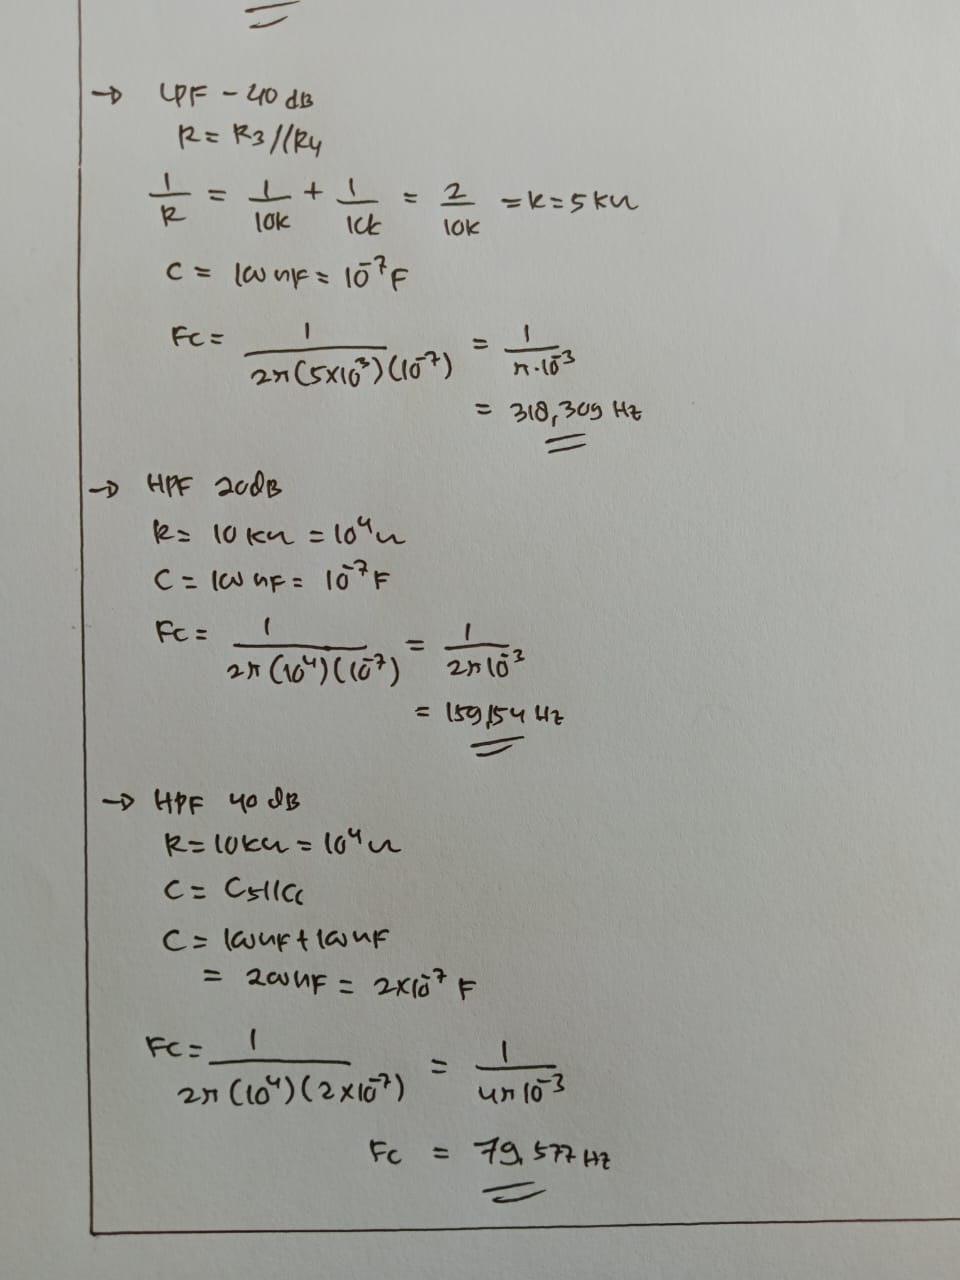 → LPF - 40 dB
R = R3 // R4
1/R = 1/10k + 1/10k = 2/10k = R = 5 kΩ
C = 100 nF = 10^-7 F
Fc = 1/(2π(5×10^3)(10^-7)) = 1/(π·10^-3)
= 318,309 Hz
→ HPF 20dB
R = 10 kΩ = 10^4 Ω
C = 100 nF = 10^-7 F
Fc = 1/(2π(10^4)(10^-7)) = 1/(2π10^-3)
= 159,154 Hz
→ HPF 40 dB
R = 10kΩ = 10^4 Ω
C = C5//C6
C = 100nF + 100nF
= 200nF = 2×10^-7 F
Fc = 1/(2π(10^4)(2×10^-7)) = 1/(4π10^-3)
Fc = 79,577 Hz